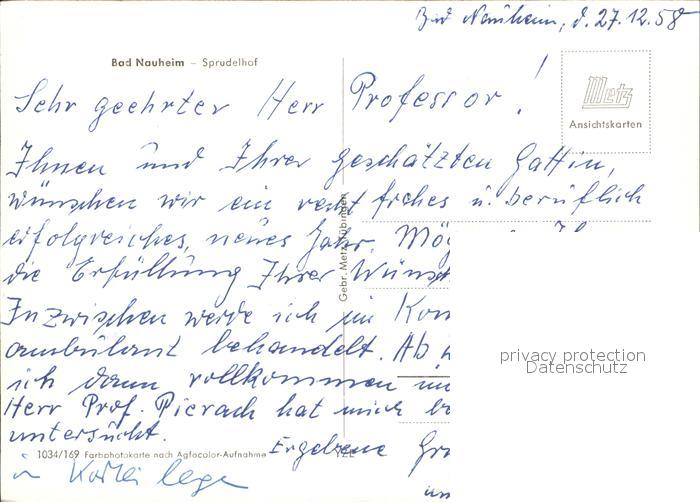 Bad Nauheim, d. 27.12.58
Bad Nauheim – Sprudelhof
Metz
Ansichtskarten
Sehr geehrter Herr Professor!
Ihnen und Ihrer geschätzten Gattin,
wünschen wir ein recht frohes u. beruflich
erfolgreiches, neues Jahr. Mög
die Erfüllung Ihrer Wünsch
Inzwischen werde ich im Kon
ambulant behandelt. Ab
ich dann vollkommen
Herr Prof. Pierach hat mich
untersucht.
Ergebene Gr
1034/169 Farbphotokarte nach Agfacolor-Aufnahme
Gebr. Metz Tübingen
privacy protection
Datenschutz